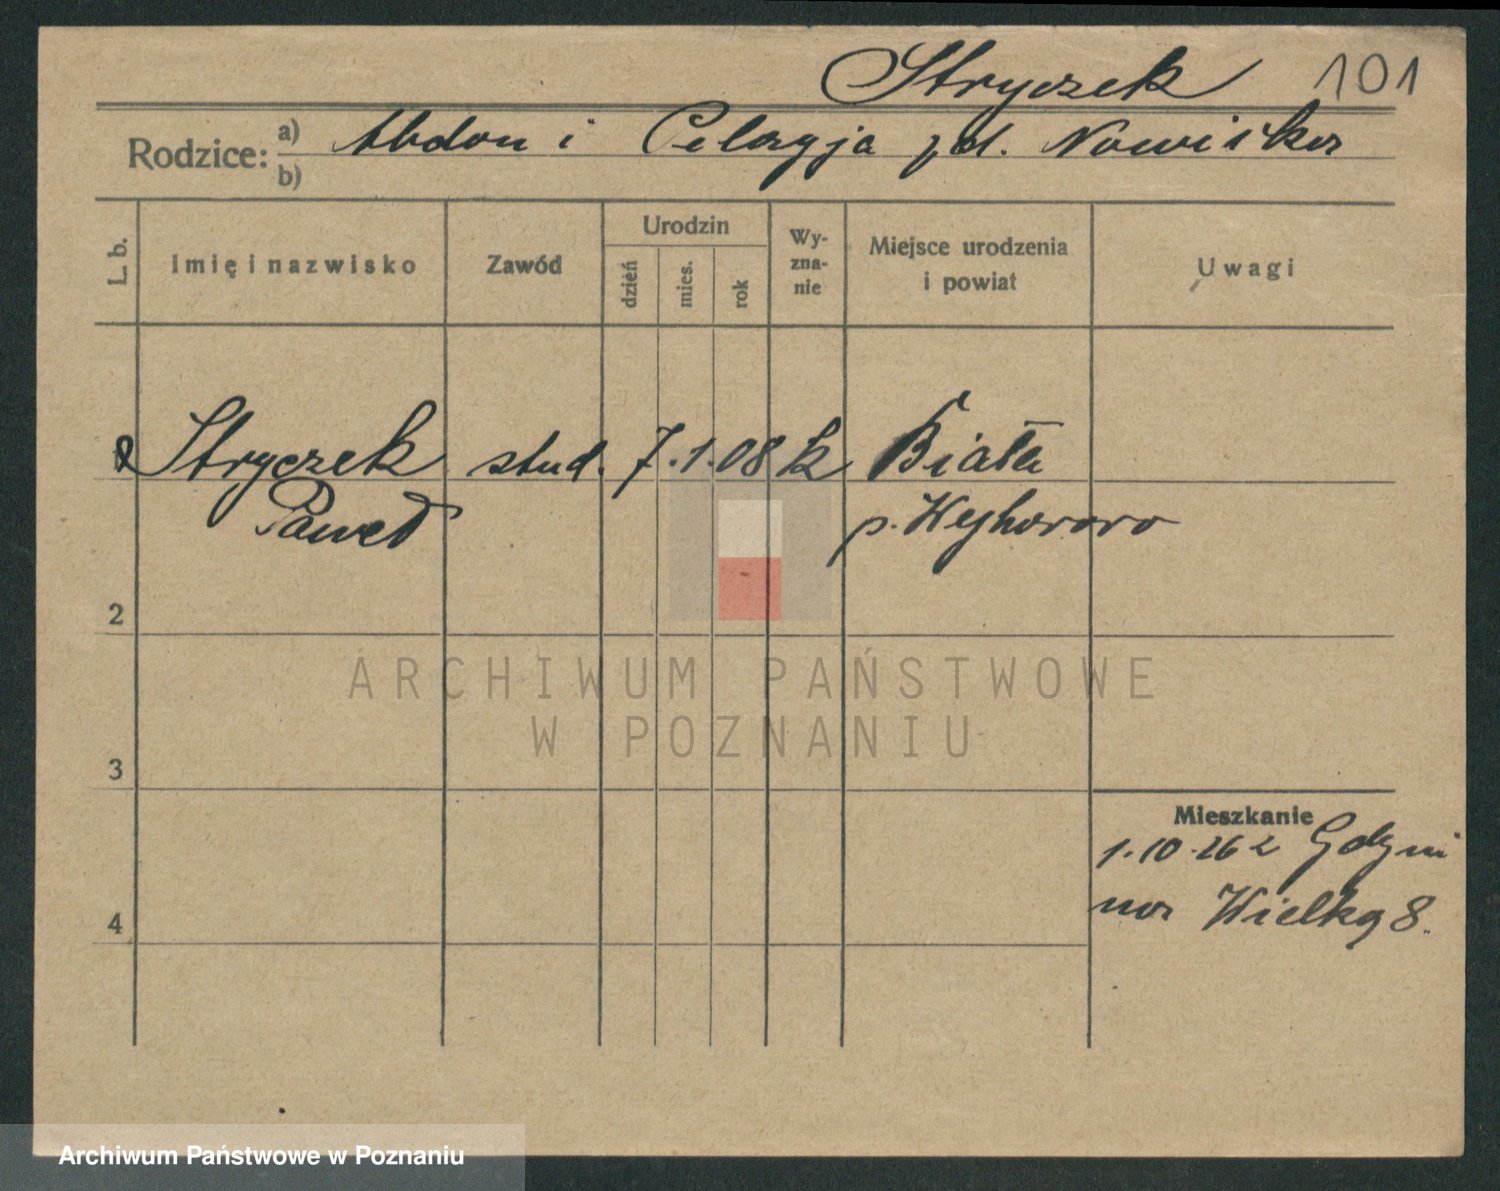 Stryczek 101
Rodzice: a) Abdon i Pelagja zd. Nowicka
b)
L. b. Imię i nazwisko Zawód Urodzin dzień mies. rok Wy-zna-nie Miejsce urodzenia i powiat Uwagi
Stryczek stud. 7.1.08 k Biała
Paweł p. Wejherowo
2
ARCHIWUM PAŃSTWOWE
W POZNANIU
3
Mieszkanie
1.10.26 z Gdyni
na Wielką 8.
4
Archiwum Państwowe w Poznaniu